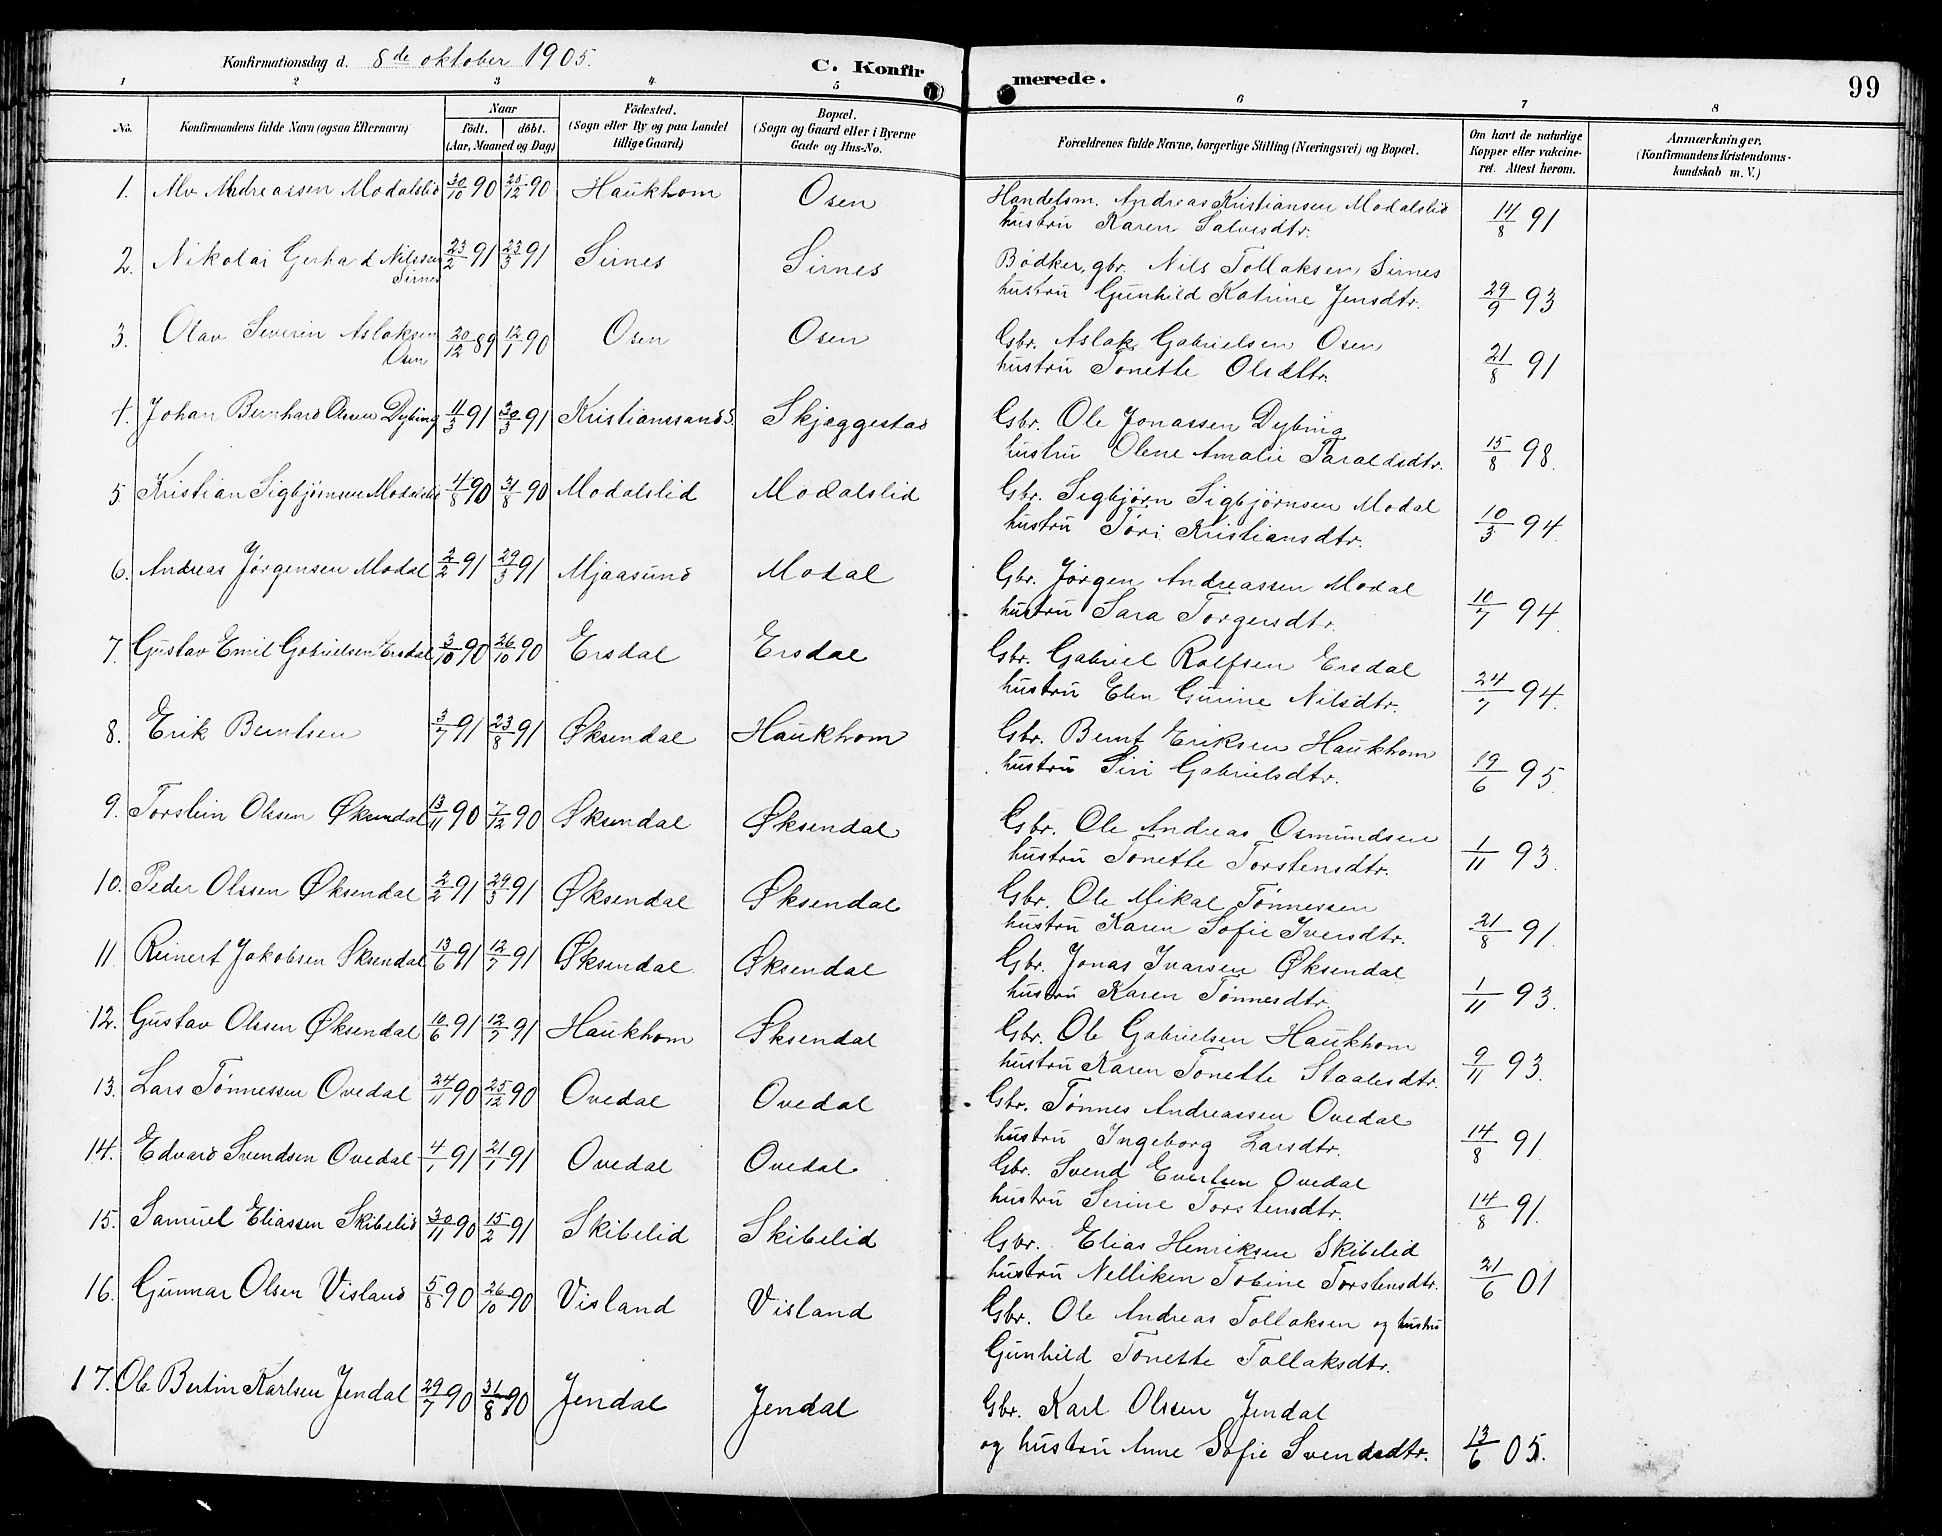 Konfirmationsdag d. 8de oktober 1905.
C. Konfirmerede.
99
1 2 3 4 5 6 7 8
No.
Konfirmandens fulde Navn (ogsaa Efternavn)
Naar
födt. döbt.
(Aar, Maaned og Dag)
Födested.
(Sogn eller By og paa Landet
tillige Gaard)
Bopæl.
(Sogn og Gaard eller i Byerne
Gade og Hus-No.
Forældrenes fulde Navne, borgerlige Stilling (Næringsvei) og Bopæl.
Om havt de naturlige
Kopper eller vakcine-
ret. Attest herom.
Anmærkninger.
(Konfirmandens Kristendoms-
kundskab m. V.)
1. Andreassen Modalslid 30/10 90 25/12 90 Haukhom Osen Handelsm. Andreas Kristiansen Modalslid
hustru Karen Salvesdtr. 14/8 91
2. Nikolai Gerhad Nilssen 23/2 91 23/3 91 Sirnes Sirnes Bødker, gbr. Nils Tollaksen Sirnes
Sirnes hustru Gunhild Katrine Jensdtr. 29/9 93
3. Olav Severin Aslaksen 20/12 89 12/1 90 Osen Osen Gbr. Aslak Gabrielsen Osen
Osen hustru Tonette Olsdtr. 21/8 91
4. Johan Bernhard Olsen Dybing 11/3 91 30/3 91 Kristianssand S. Skjeggestad Gbr. Ole Jonassen Dybing
hustru Olene Amalie Taraldsdtr. 15/8 98.
5 Kristian Sigbjørnsen Modalslid 4/8 90 31/8 90 Modalslid Modalslid Gbr. Sigbjørn Sigbjørnsen Modal
hustru Tøri Kristiansdtr. 10/3 94.
6. Andreas Jørgensen Modal 2/2 91 29/3 91 Mjaasund Modal Gbr. Jørgen Andreassen Modal
hustru Sara Torgersdtr. 10/7 94.
7. Gustav Emil Gabrielsen Ersdal 3/10 90 26/10 90 Ersdal Ersdal Gbr. Gabriel Rolfsen Ersdal
hustru Elen Gurine Nilsdtr. 24/7 94.
8. Erik Berntsen 3/7 91 23/8 91 Øksendal Haukhom Gbr. Bernt Eriksen Haukhom
hustru Siri Gabrielsdtr. 19/6 95.
9. Torstein Olsen Øksendal 13/11 90 7/12 90 Øksendal Øksendal Gbr. Ole Andreas Osmundsen
hustru Tonette Torstensdtr. 1/11 93.
10. Peder Olssen Øksendal 2/2 91 29/3 91 Øksendal Øksendal Gbr. Ole Mikal Tønnessen
hustru Karen Sofie Iversdtr. 21/8 91.
11 Reinert Jakobsen Øksendal 13/6 91 12/7 91 Øksendal Øksendal Gbr. Jonas Ivarsen Øksendal
hustru Karen Tønnesdtr. 1/11 93.
12. Gustav Olssen Øksendal 10/6 91 12/7 91 Haukhom Øksendal Gbr. Ole Gabrielsen Haukhom
hustru Karen Tonette Staalesdtr. 9/11 93.
13. Lars Tønnessen Ovedal 24/11 90 25/12 90 Ovedal Ovedal Gbr. Tønnes Andreassen Ovedal
hustru Ingeborg Larsdtr. 14/8 91.
14. Edvard Svendsen Ovedal 4/1 91 21/1 91 Ovedal Ovedal Gbr. Svend Evertsen Ovedal
hustru Serine Torstensdtr. 14/8 91.
15. Samuel Eliassen Skibelid 30/11 90 15/2 91 Skibelid Skibelid Gbr. Elias Henriksen Skibelid
hustru Nelliken Tobine Torstensdtr. 21/6 01
16. Gunnar Olsen Visland 5/8 90 26/10 90 Visland Visland Gbr. Ole Andreas Tollaksen og hustru
Gunhild Tonette Tollaksdtr.
17. Ole Bertin Karlsen Jendal 29/7 90 31/8 90 Jendal Jendal Gbr. Karl Olssen Jendal
og hustru Anne Sofie Svendsdtr. 13/6 05.